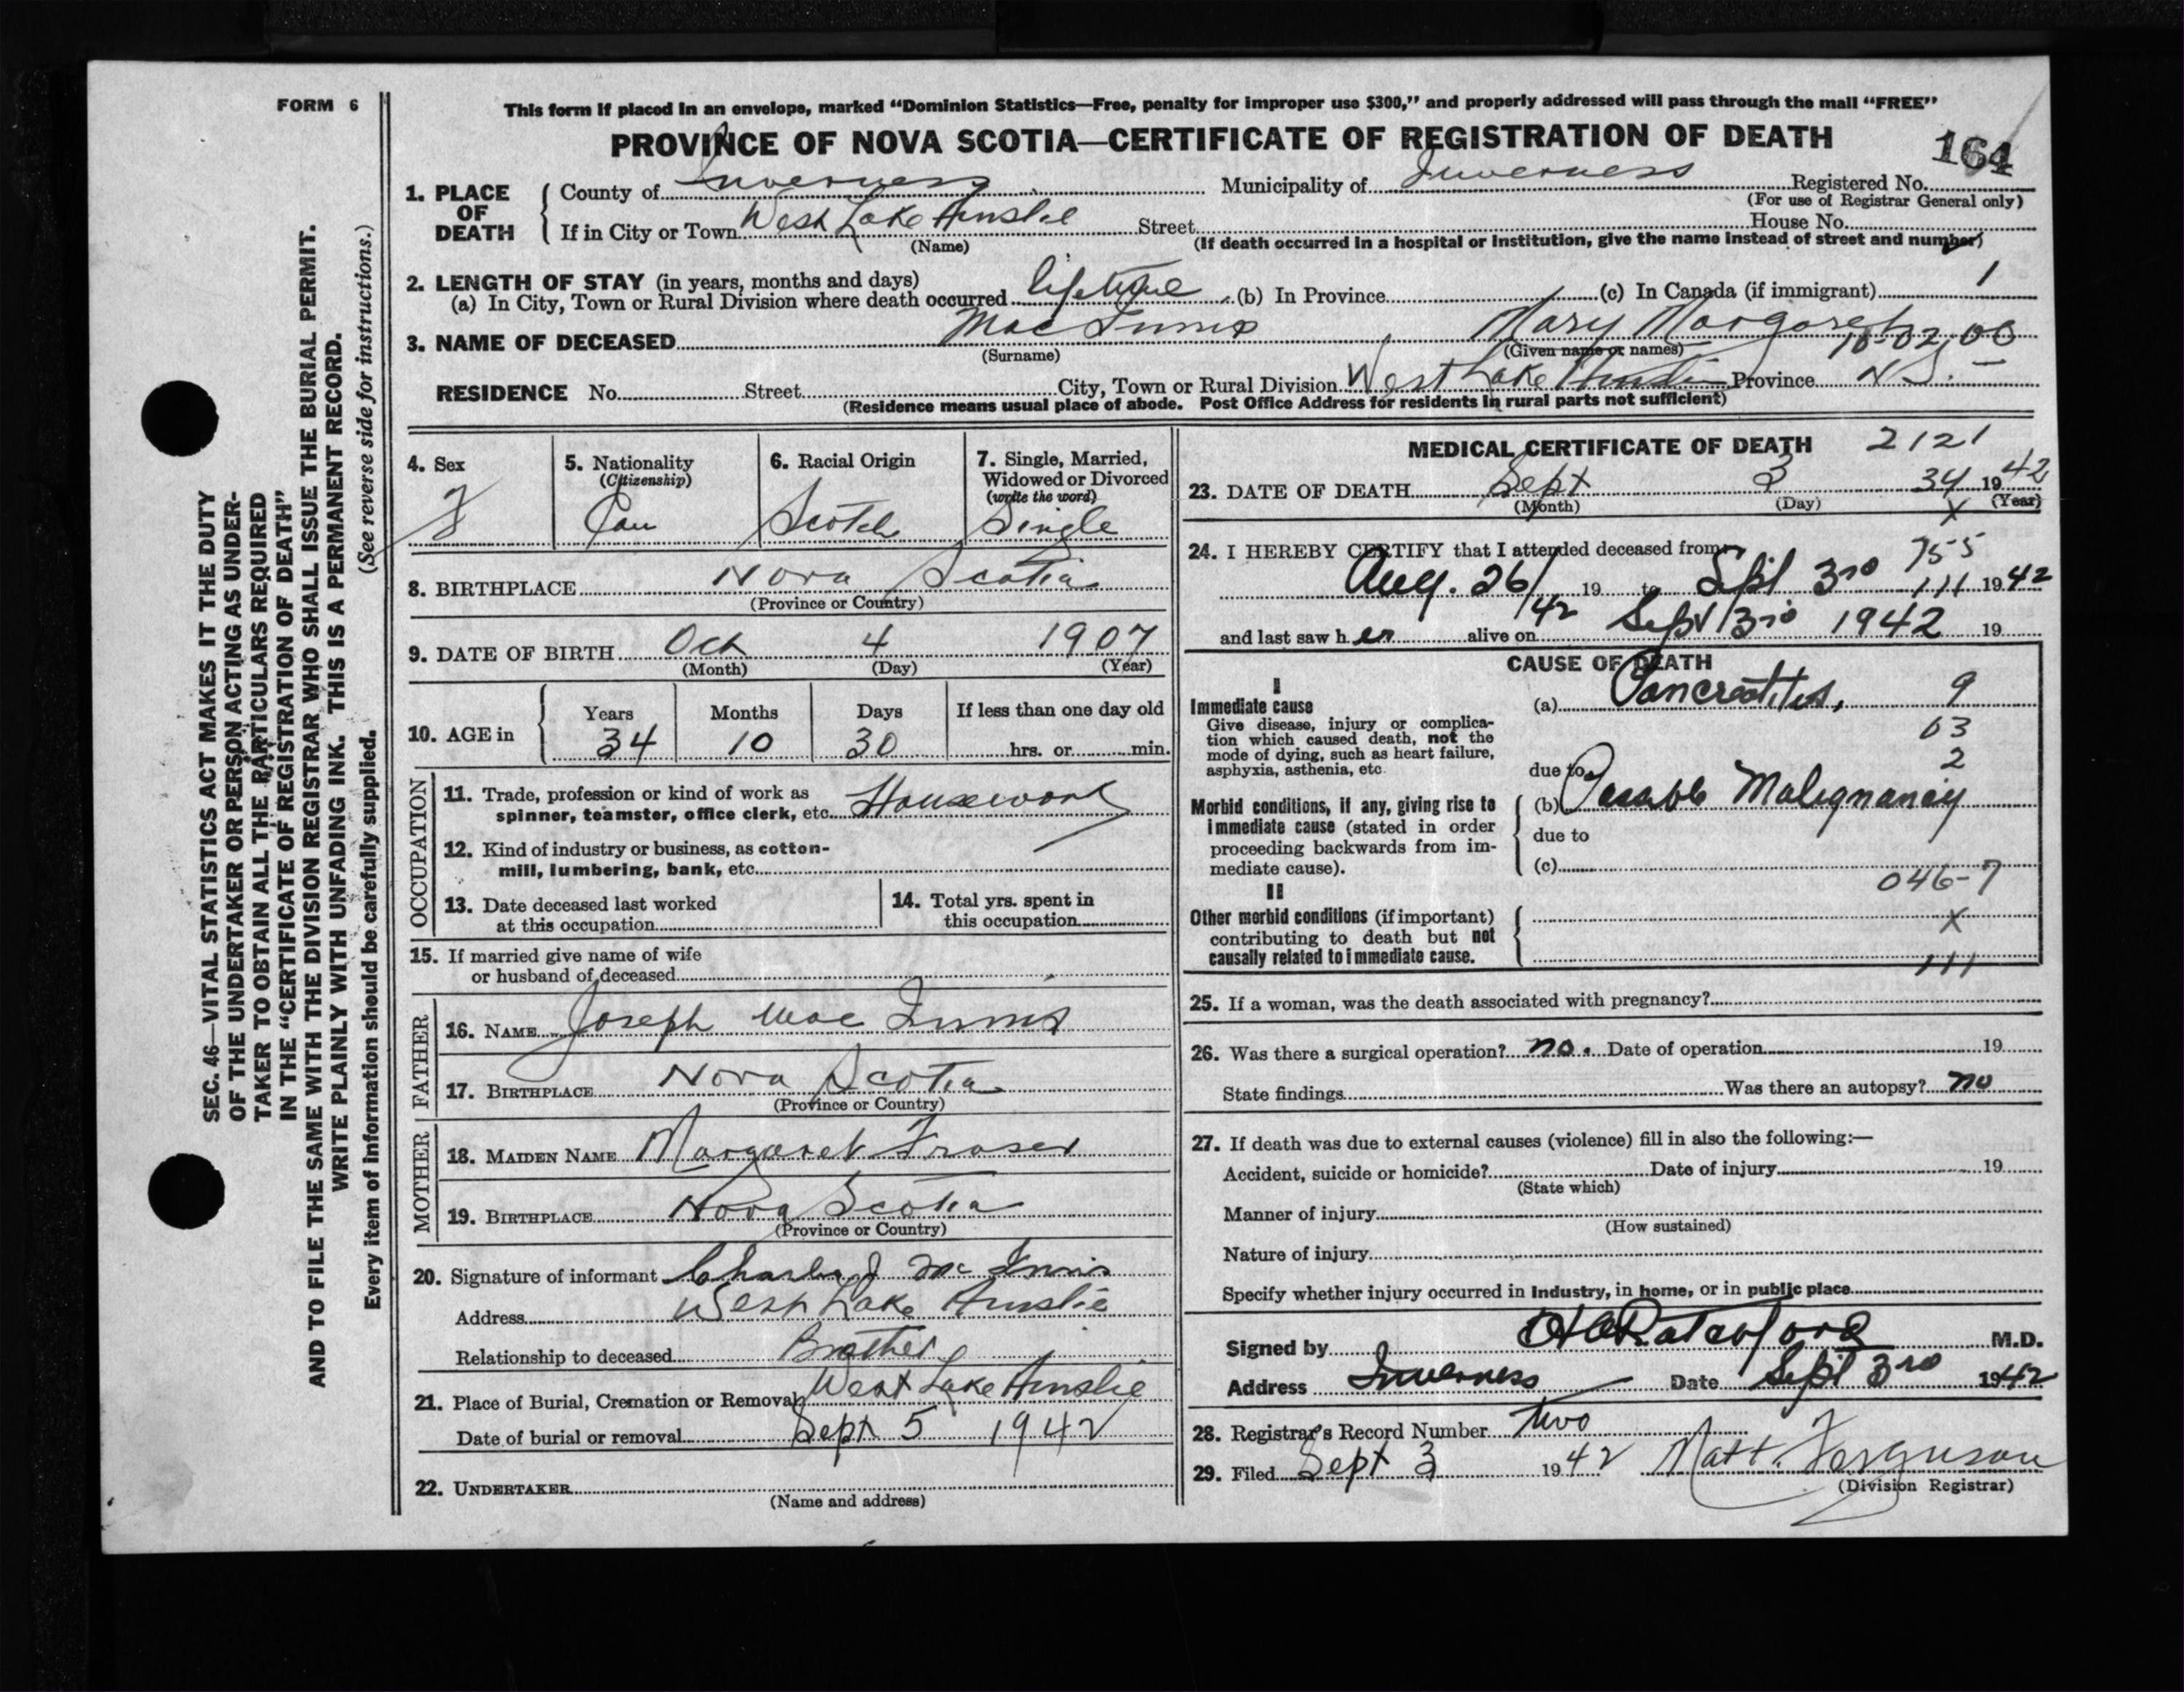 FORM 6
This form if placed in an envelope, marked “Dominion Statistics—Free, penalty for improper use $300,” and properly addressed will pass through the mail “FREE”
PROVINCE OF NOVA SCOTIA—CERTIFICATE OF REGISTRATION OF DEATH
164
1. PLACE OF DEATH
County of Inverness Municipality of Inverness Registered No.
(For use of Registrar General only)
If in City or Town West Lake Ainslie Street House No.
(Name) (If death occurred in a hospital or institution, give the name instead of street and number)
2. LENGTH OF STAY (in years, months and days)
(a) In City, Town or Rural Division where death occurred lifetime (b) In Province (c) In Canada (if immigrant) 1
3. NAME OF DECEASED Mac Innis, Mary Margaret
(Surname) (Given name or names)
RESIDENCE No. Street City, Town or Rural Division West Lake Ainslie Province N.S.
(Residence means usual place of abode. Post Office Address for residents in rural parts not sufficient)
4. Sex F
5. Nationality (Citizenship) Can
6. Racial Origin Scotch
7. Single, Married, Widowed or Divorced (write the word) Single
8. BIRTHPLACE Nova Scotia
(Province or Country)
9. DATE OF BIRTH Oct 4 1907
(Month) (Day) (Year)
10. AGE in Years 34 Months 10 Days 30 If less than one day old
hrs. or min.
OCCUPATION
11. Trade, profession or kind of work as
spinner, teamster, office clerk, etc. Housework
12. Kind of industry or business, as cotton-
mill, lumbering, bank, etc.
13. Date deceased last worked
at this occupation
14. Total yrs. spent in
this occupation
15. If married give name of wife
or husband of deceased
FATHER
16. NAME Joseph Mac Innis
17. BIRTHPLACE Nova Scotia
(Province or Country)
MOTHER
18. MAIDEN NAME Margaret Fraser
19. BIRTHPLACE Nova Scotia
(Province or Country)
20. Signature of informant Charles J Mc Innis
Address West Lake Ainslie
Relationship to deceased Brother
21. Place of Burial, Cremation or Removal West Lake Ainslie
Date of burial or removal Sept 5 1942
22. UNDERTAKER
(Name and address)
MEDICAL CERTIFICATE OF DEATH 2121
23. DATE OF DEATH Sept 3 34 1942
(Month) (Day) X (Year)
24. I HEREBY CERTIFY that I attended deceased from 755
Aug. 26/42 19 to Sept 3rd 111 1942
and last saw her alive on Sept 3rd 1942 19
CAUSE OF DEATH
I
Immediate cause
Give disease, injury or complica-
tion which caused death, not the
mode of dying, such as heart failure,
asphyxia, asthenia, etc.
(a) Pancreatitis, 9
03
2
due to
Morbid conditions, if any, giving rise to
immediate cause (stated in order
proceeding backwards from im-
mediate cause).
(b) Possible Malignancy
due to
(c)
046-7
II
Other morbid conditions (if important)
contributing to death but not
causally related to immediate cause.
X
111
25. If a woman, was the death associated with pregnancy?
26. Was there a surgical operation? no. Date of operation 19
State findings Was there an autopsy? no
27. If death was due to external causes (violence) fill in also the following:—
Accident, suicide or homicide? Date of injury 19
(State which)
Manner of injury
(How sustained)
Nature of injury
Specify whether injury occurred in industry, in home, or in public place
Signed by Ratchford M.D.
Address Inverness Date Sept 3rd 1942
28. Registrar's Record Number two
29. Filed Sept 3 1942 Matt. Ferguson
(Division Registrar)
SEC. 46—VITAL STATISTICS ACT MAKES IT THE DUTY
OF THE UNDERTAKER OR PERSON ACTING AS UNDER-
TAKER TO OBTAIN ALL THE PARTICULARS REQUIRED
IN THE “CERTIFICATE OF REGISTRATION OF DEATH”
AND TO FILE THE SAME WITH THE DIVISION REGISTRAR WHO SHALL ISSUE THE BURIAL PERMIT.
WRITE PLAINLY WITH UNFADING INK. THIS IS A PERMANENT RECORD.
(See reverse side for instructions.)
Every item of information should be carefully supplied.